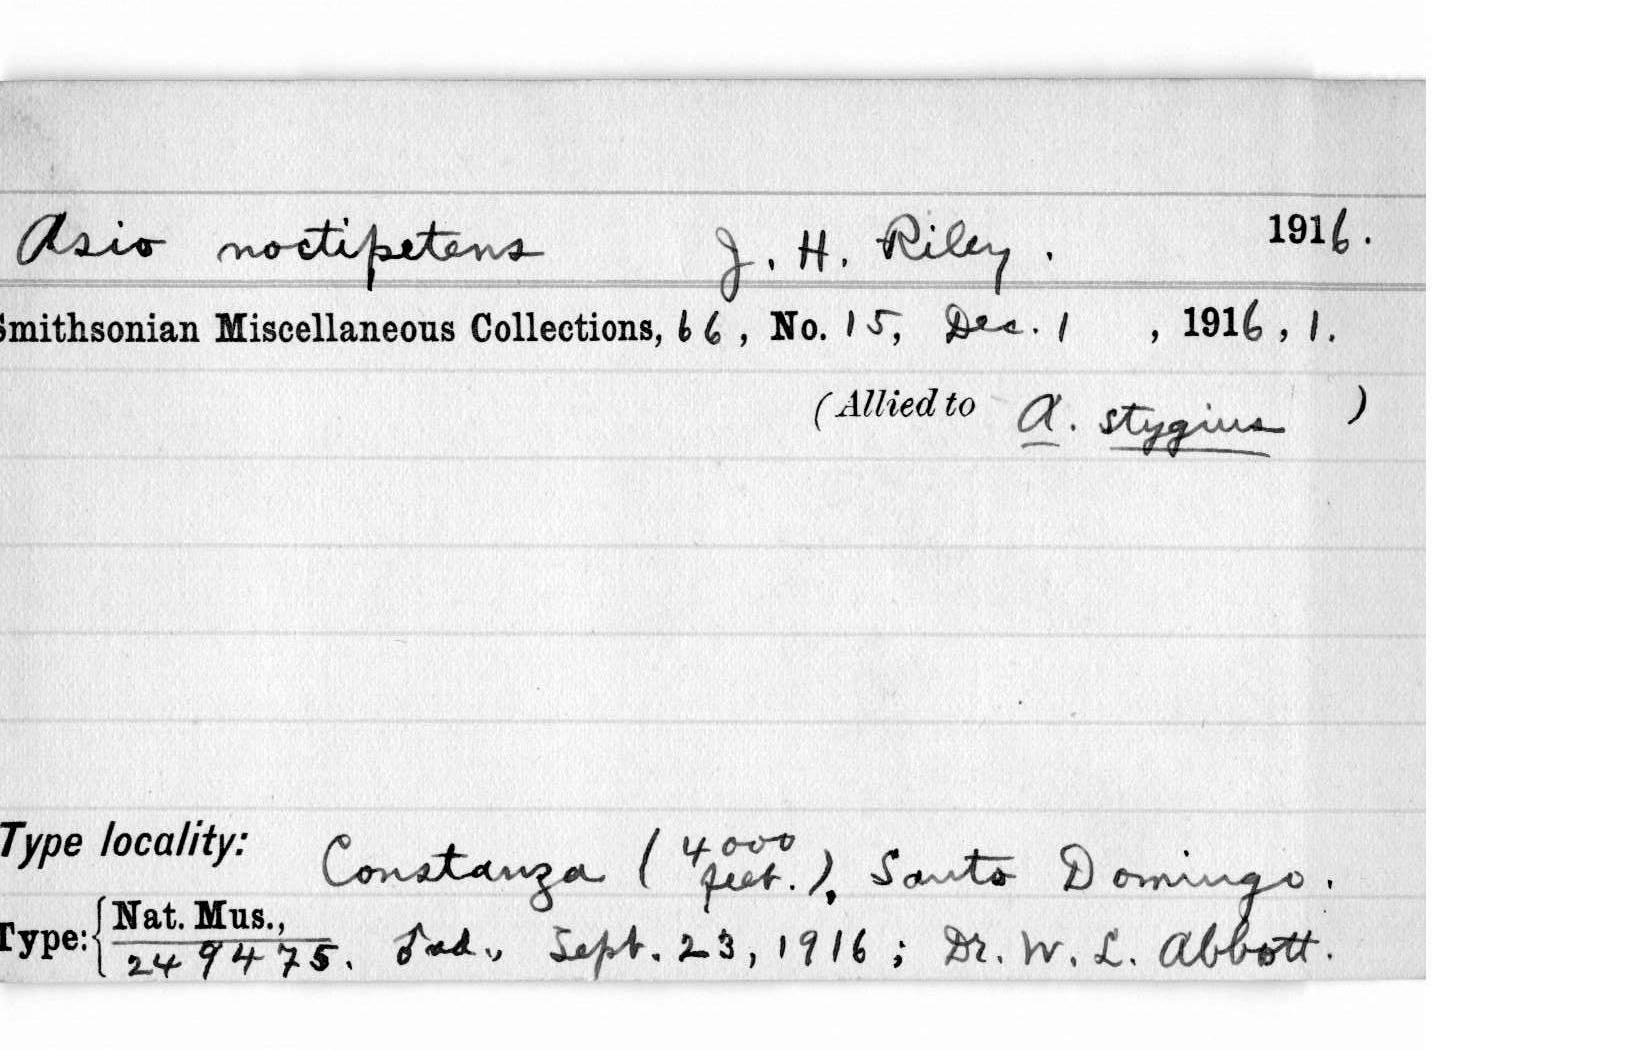 Asio noctipetens J. H. Riley. 1916.
Smithsonian Miscellaneous Collections, 66, No. 15, Dec. 1, 1916, 1.
(Allied to A. stygius)
Type locality: Constanza (4000 feet.), Santo Domingo.
Type: Nat. Mus., 249475. ♂ ad., Sept. 23, 1916; Dr. W. L. Abbott.